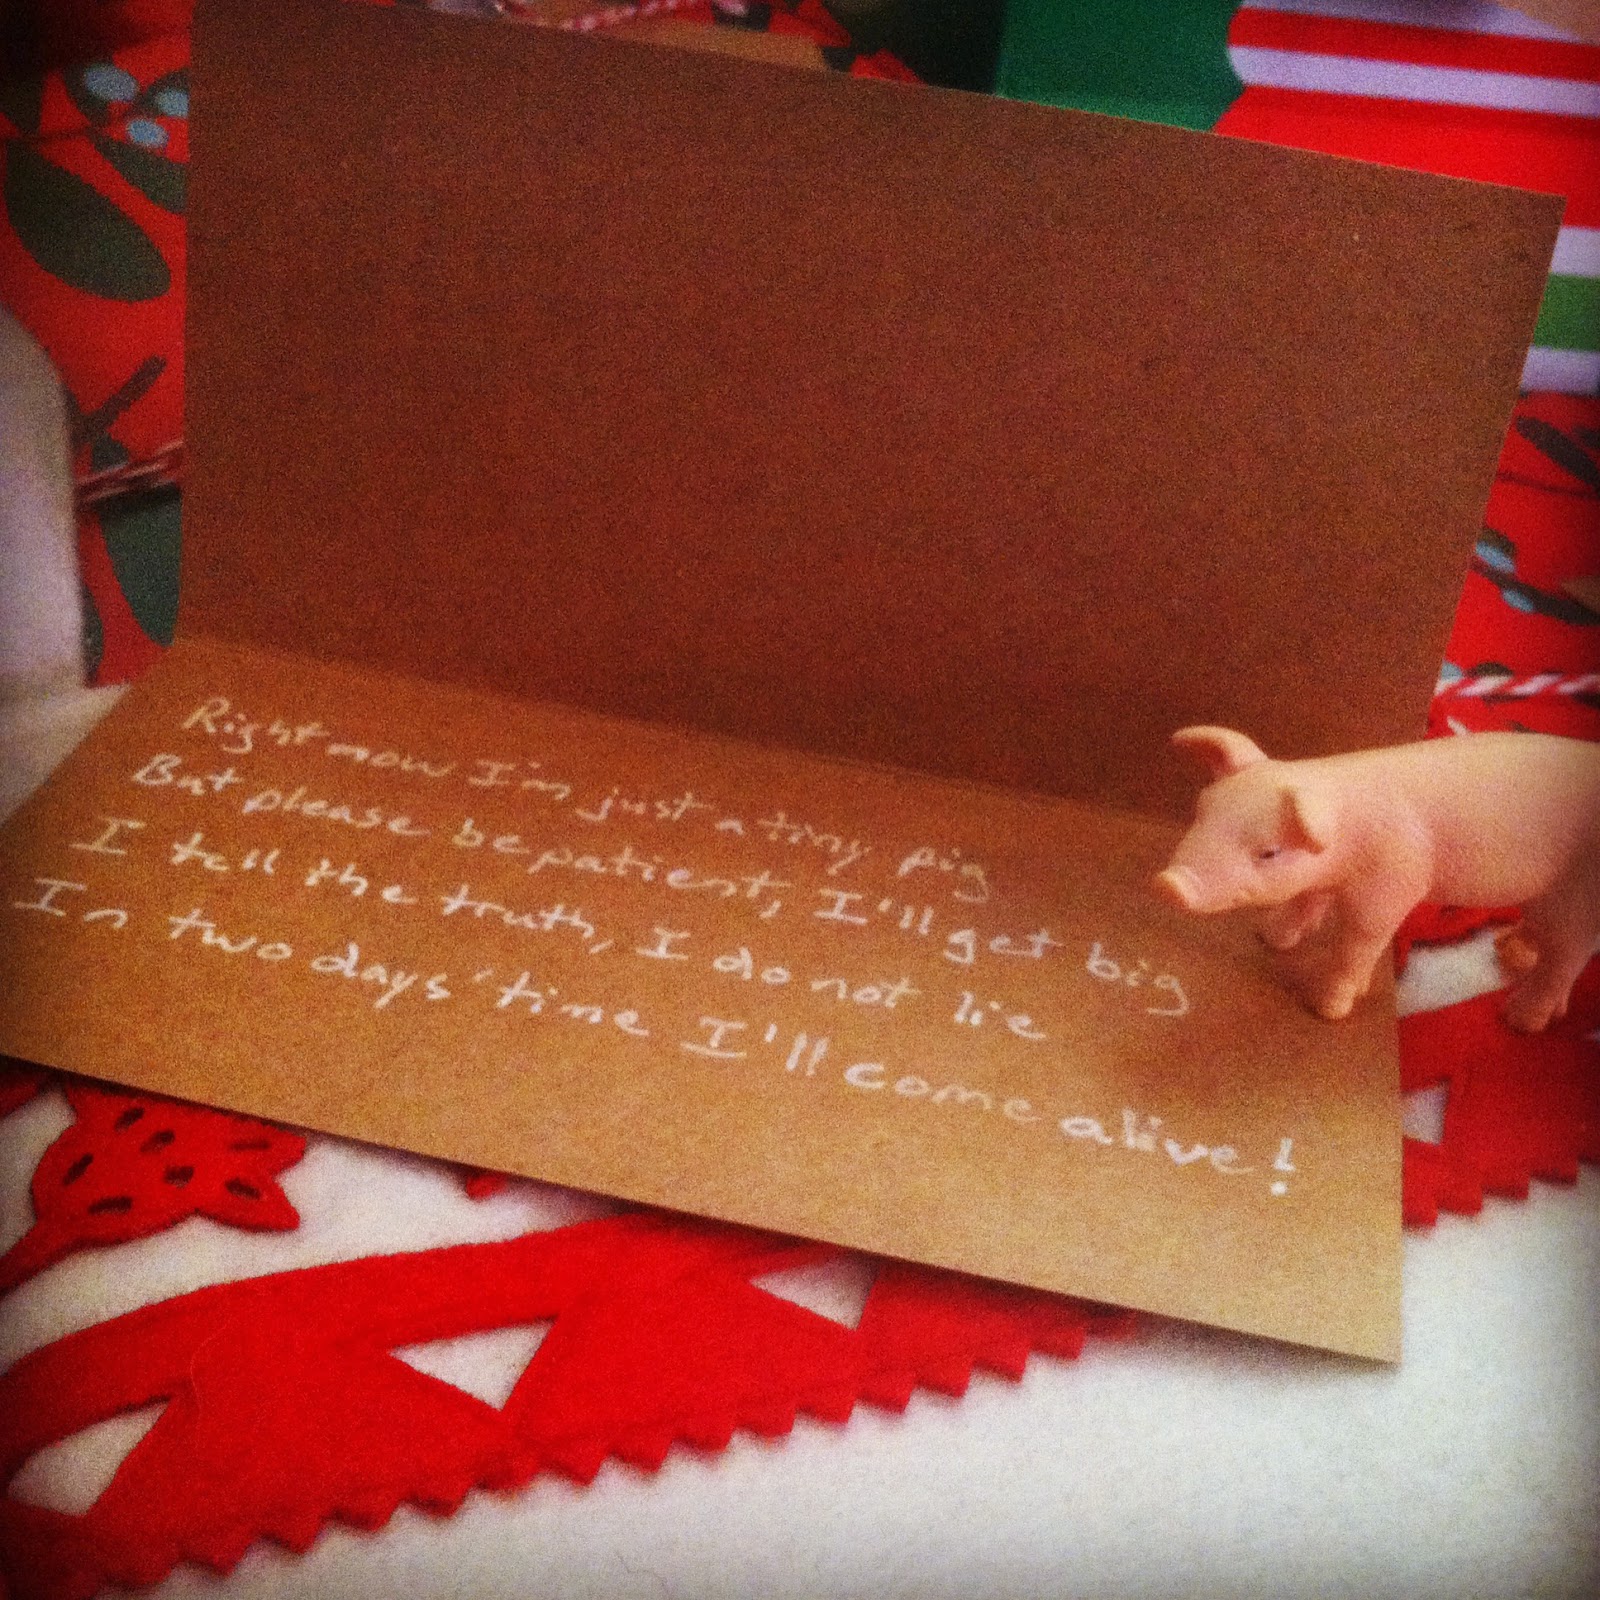 Right now I'm just a tiny pig
But please be patient, I'll get big
I tell the truth, I do not lie
In two days' time I'll come alive!